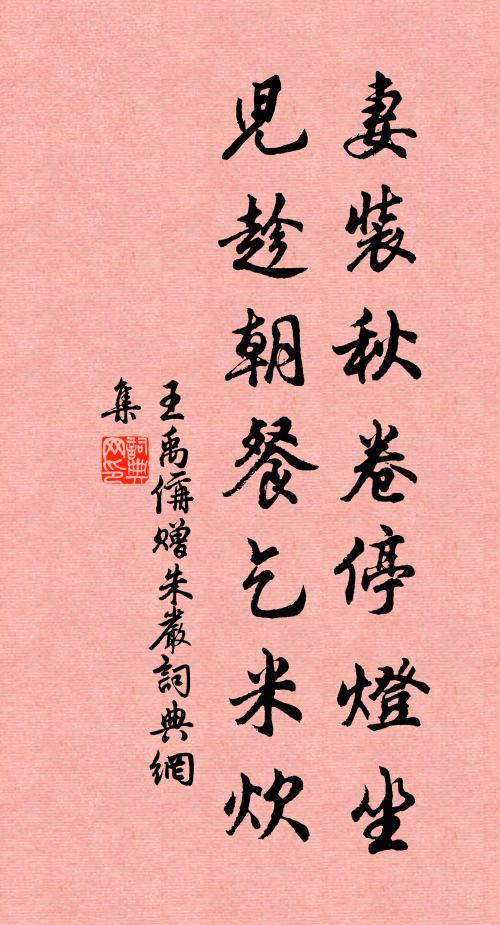 妻裝秋卷停燈坐
兒趁朝餐乞米炊
王禹偁贈朱嚴詞典網
集
詞典
网印